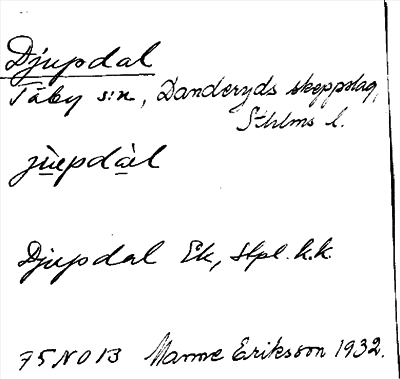 Djupdal
Täby s:n, Danderyds skeppslag,
Sthlms l.
jùepdàl
Djupdal Ek, stpl. k.k.
75 NO 13 Manne Eriksson 1932.